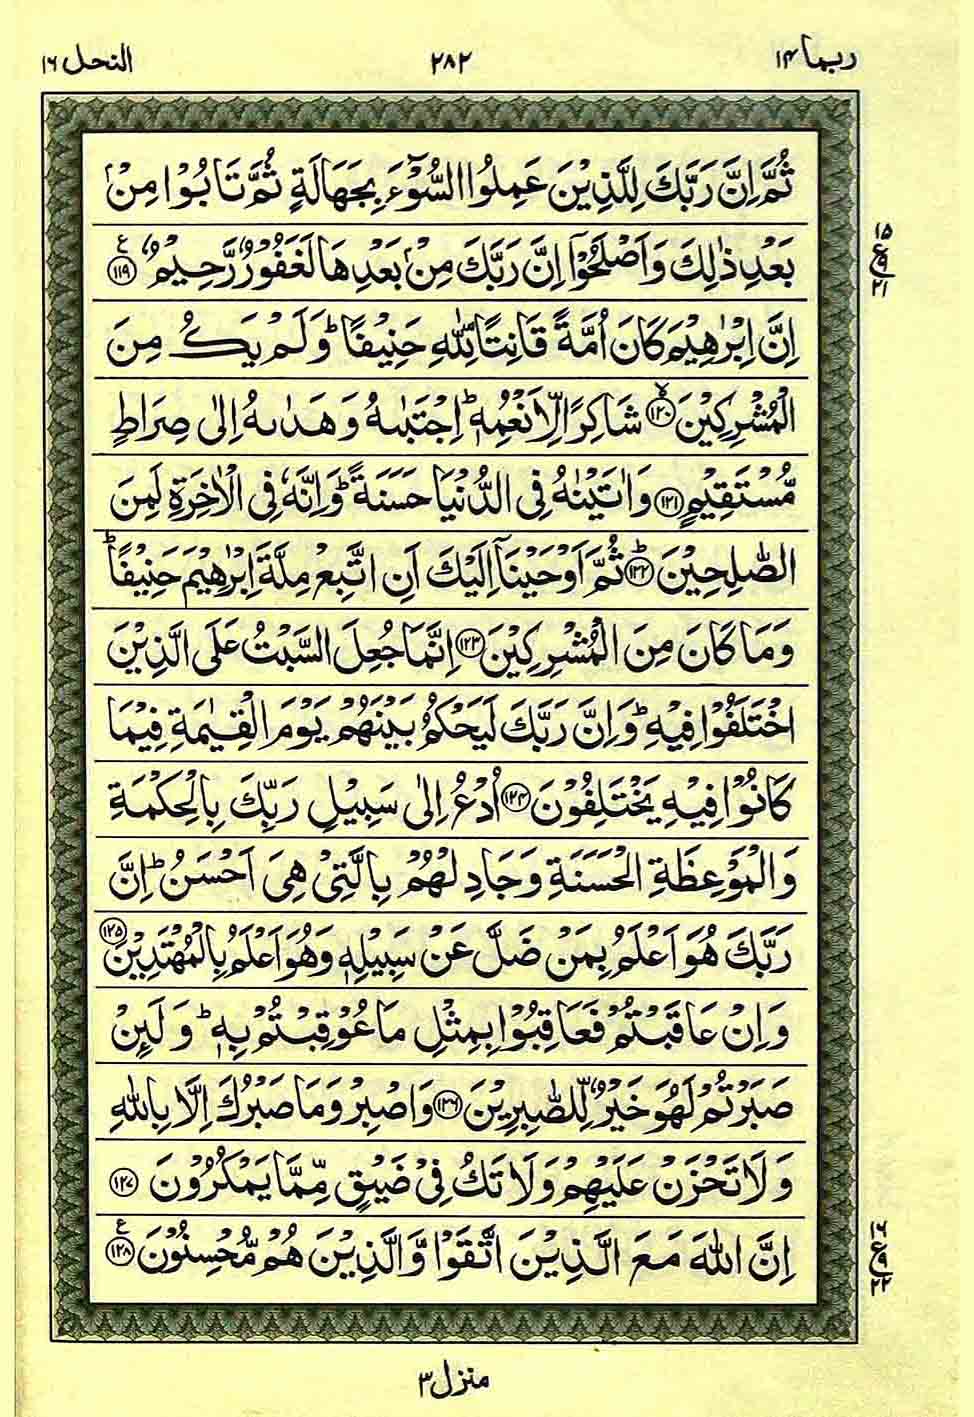 ربما ١٤
٢٨٢
النحل ١٦
ثُمَّ اِنَّ رَبَّكَ لِلَّذِيْنَ عَمِلُوا السُّوْٓءَ بِجَهَالَةٍ ثُمَّ تَابُوْا مِنْۢ
بَعْدِ ذٰلِكَ وَاَصْلَحُوْۤا اِنَّ رَبَّكَ مِنْۢ بَعْدِهَا لَغَفُوْرٌ رَّحِيْمٌ ؑ ﴿١١٩﴾
١٥
ع
٢١
اِنَّ اِبْرٰهِيْمَ كَانَ اُمَّةً قَانِتًا لِّلّٰهِ حَنِيْفًا ؕ وَلَمْ يَكُ مِنَ
الْمُشْرِكِيْنَ ۙ ﴿١٢٠﴾ شَاكِرًا لِّاَنْعُمِهٖ ؕ اِجْتَبٰىهُ وَهَدٰىهُ اِلٰى صِرَاطٍ
مُّسْتَقِيْمٍ ﴿١٢١﴾ وَاٰتَيْنٰهُ فِى الدُّنْيَا حَسَنَةً ؕ وَاِنَّهٗ فِى الْاٰخِرَةِ لَمِنَ
الصّٰلِحِيْنَ ؕ ﴿١٢٢﴾ ثُمَّ اَوْحَيْنَاۤ اِلَيْكَ اَنِ اتَّبِعْ مِلَّةَ اِبْرٰهِيْمَ حَنِيْفًا ؕ
وَمَا كَانَ مِنَ الْمُشْرِكِيْنَ ﴿١٢٣﴾ اِنَّمَا جُعِلَ السَّبْتُ عَلَى الَّذِيْنَ
اخْتَلَفُوْا فِيْهِ ؕ وَاِنَّ رَبَّكَ لَيَحْكُمُ بَيْنَهُمْ يَوْمَ الْقِيٰمَةِ فِيْمَا
كَانُوْا فِيْهِ يَخْتَلِفُوْنَ ﴿١٢٤﴾ اُدْعُ اِلٰى سَبِيْلِ رَبِّكَ بِالْحِكْمَةِ
وَالْمَوْعِظَةِ الْحَسَنَةِ وَجَادِلْهُمْ بِالَّتِىْ هِىَ اَحْسَنُ ؕ اِنَّ
رَبَّكَ هُوَ اَعْلَمُ بِمَنْ ضَلَّ عَنْ سَبِيْلِهٖ وَهُوَ اَعْلَمُ بِالْمُهْتَدِيْنَ ﴿١٢٥﴾
وَاِنْ عَاقَبْتُمْ فَعَاقِبُوْا بِمِثْلِ مَا عُوْقِبْتُمْ بِهٖ ؕ وَلَئِنْ
صَبَرْتُمْ لَهُوَ خَيْرٌ لِّلصّٰبِرِيْنَ ﴿١٢٦﴾ وَاصْبِرْ وَمَا صَبْرُكَ اِلَّا بِاللّٰهِ
وَلَا تَحْزَنْ عَلَيْهِمْ وَلَا تَكُ فِىْ ضَيْقٍ مِّمَّا يَمْكُرُوْنَ ﴿١٢٧﴾
اِنَّ اللّٰهَ مَعَ الَّذِيْنَ اتَّقَوْا وَّالَّذِيْنَ هُمْ مُّحْسِنُوْنَ ؑ ﴿١٢٨﴾
١٦
ع
٢٢
منزل ٣